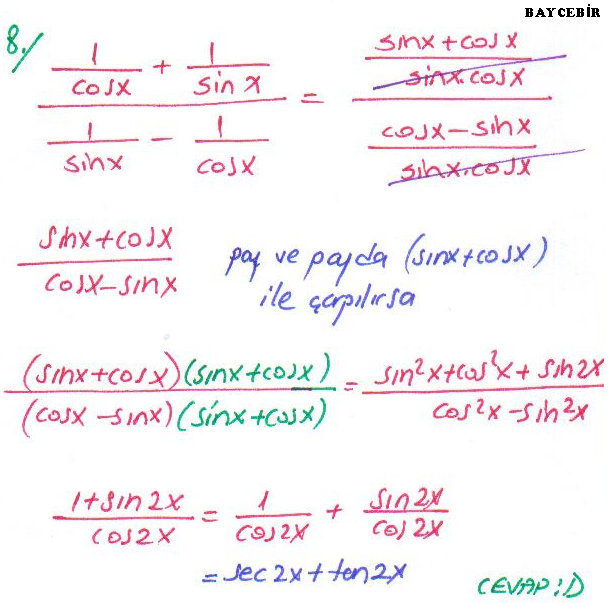 BAYCEBİR
8./ (1/cosx + 1/sinx) / (1/sinx − 1/cosx) = ((sinx+cosx)/(sinx.cosx)) / ((cosx−sinx)/(sinx.cosx))
(sinx+cosx)/(cosx−sinx) pay ve payda (sinx+cosx)
ile çarpılırsa
(sinx+cosx)(sinx+cosx)/(cosx−sinx)(sinx+cosx) = (sin²x+cos²x+sin2x)/(cos²x−sin²x)
(1+sin2x)/(cos2x) = 1/cos2x + sin2x/cos2x
=sec2x+tan2x
CEVAP:D